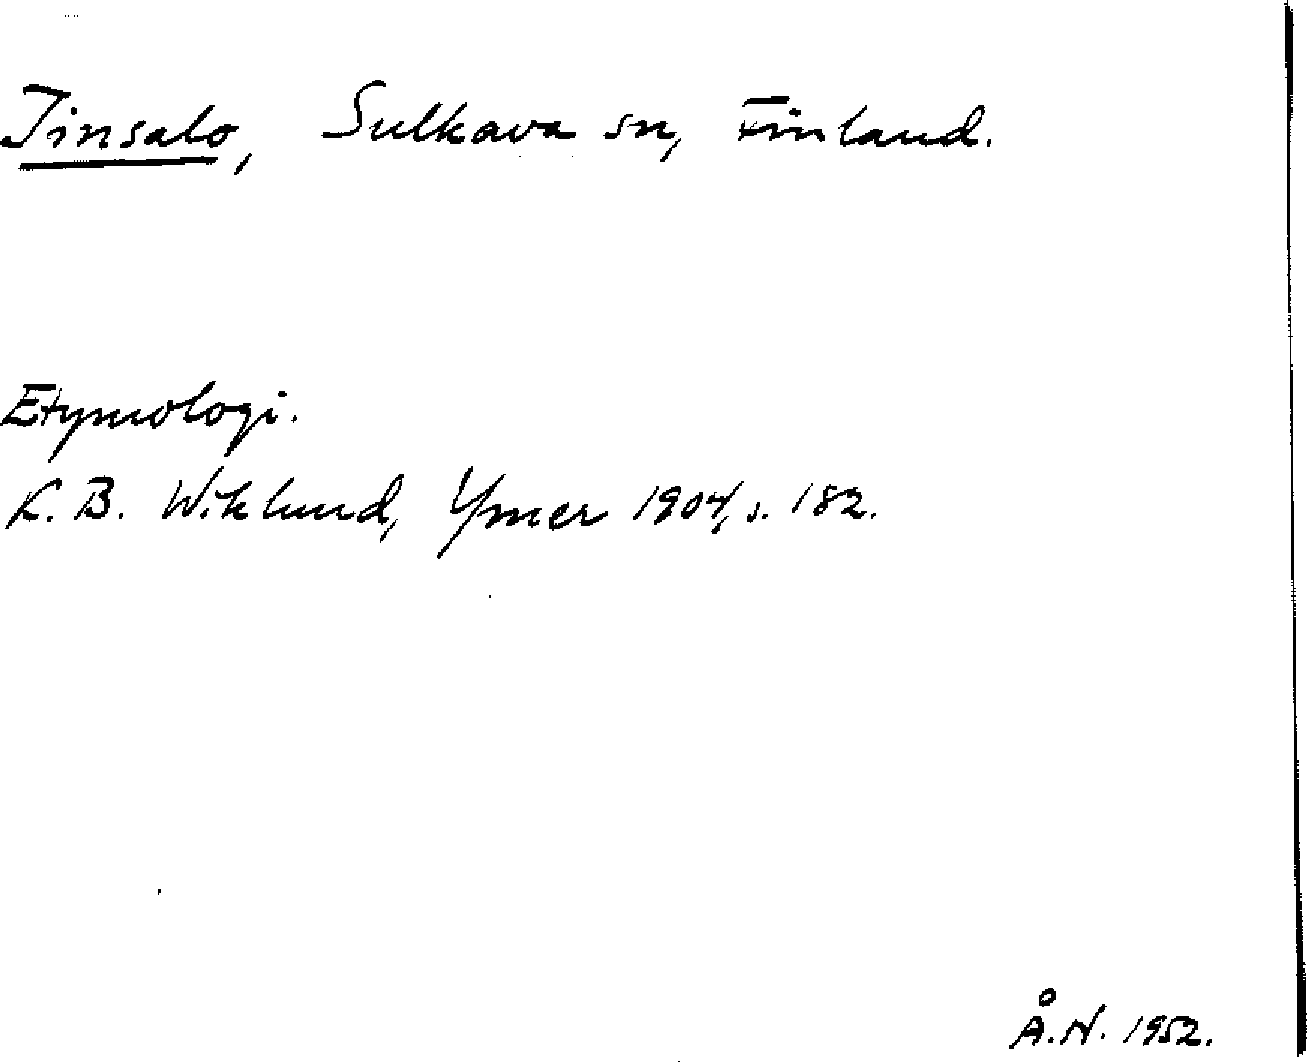 Iinsalo, Sulkava sn, Finland.
Etymologi.
K. B. Wiklund, Ymer 1904, s. 182.
Å. N. 1952.